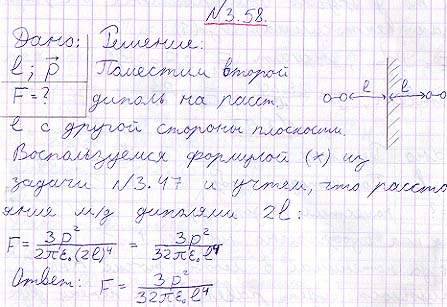 №3.58.
Дано: Решение:
l; p⃗ Поместим второй
F=? диполь на расст.
l с другой стороны плоскости.
l l
Воспользуемся формулой (x) из
задачи №3.47 и учтем, что рассто
яние м/д диполями 2l:
F = 3p²/2πε₀(2l)⁴ = 3p²/32πε₀l⁴
Ответ: F = 3p²/32πε₀l⁴